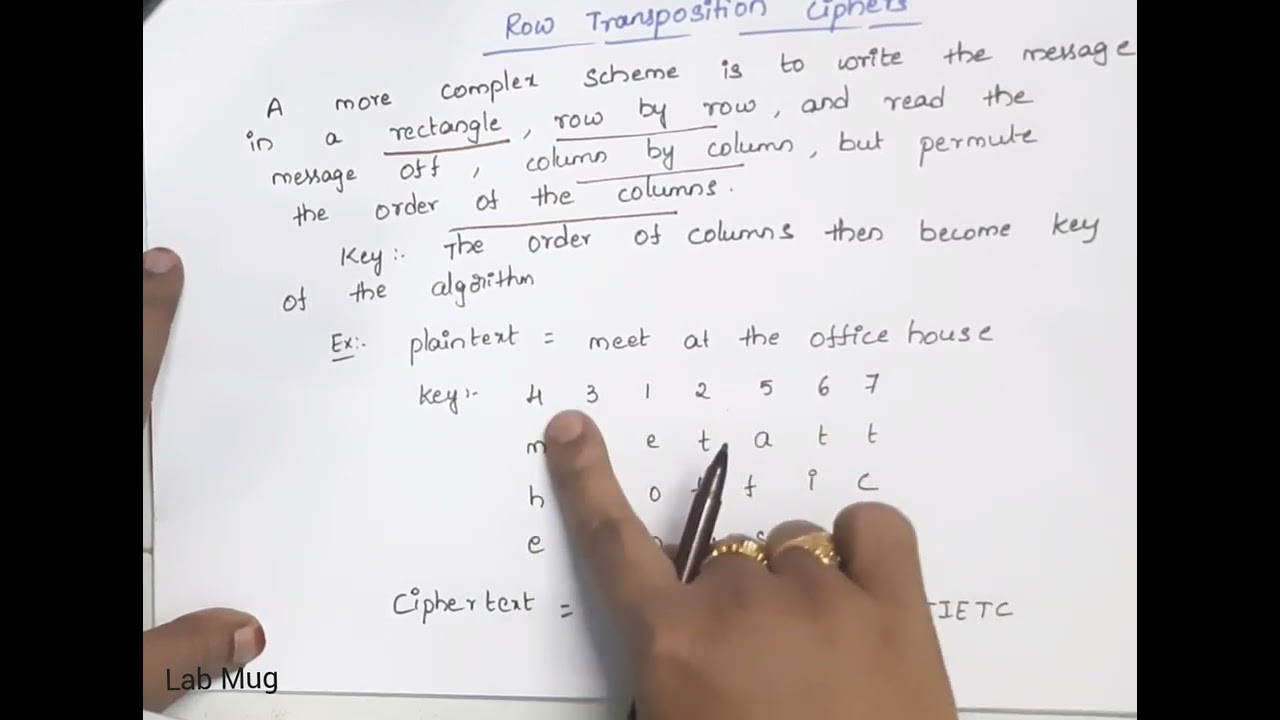 Row Transposition Ciphers
A more complex scheme is to write the message
in a rectangle, row by row, and read the
message off, column by column, but permute
the order of the columns.
Key:- The order of columns then become key
of the algorithm
Ex:- plaintext = meet at the office house
Key:- 4 3 1 2 5 6 7
m e t a t t
h o f i c
e
Ciphertext = IETC
Lab Mug